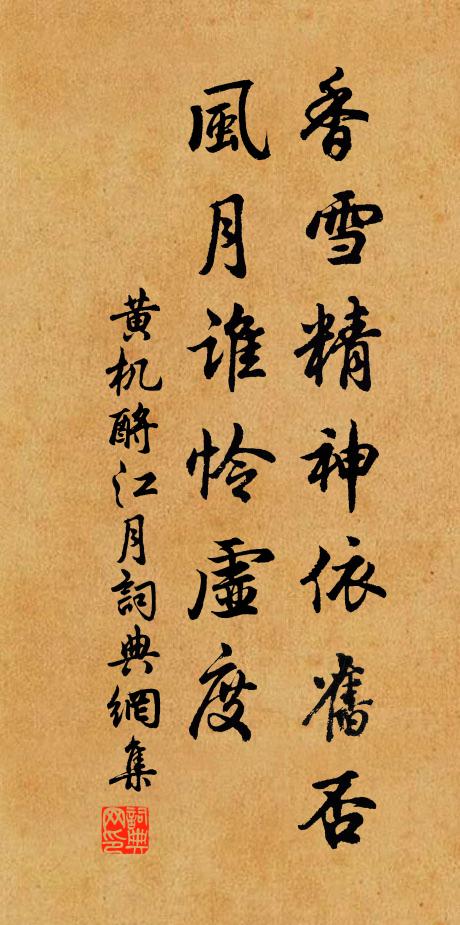 香雪精神依舊否
風月谁怜虛度
黄机酹江月詞典網集
詞典网印